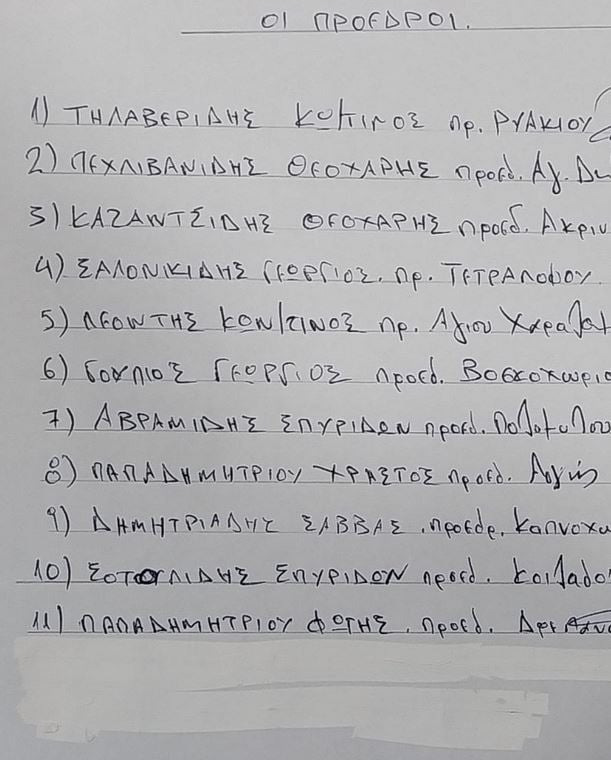 ΟΙ ΠΡΟΕΔΡΟΙ.
1) ΤΗΛΑΒΕΡΙΔΗΣ ΚΩ/ΤΙΝΟΣ πρ. ΡΥΑΚΙΟΥ
2) ΠΕΧΛΙΒΑΝΙΔΗΣ ΘΕΟΧΑΡΗΣ προεδ. Αγ. Δη
3) ΚΑΖΑΝΤΣΙΔΗΣ ΘΕΟΧΑΡΗΣ προεδ. Ακριν
4) ΣΑΛΟΝΙΚΙΔΗΣ ΓΕΩΡΓΙΟΣ. πρ. ΤΕΤΡΑΛΟΦΟΥ.
5) ΛΕΟΝΤΗΣ ΚΩΝ/ΤΙΝΟΣ πρ. Αγιου Χαραλαμ
6) ΓΟΥΠΙΟΣ ΓΕΩΡΓΙΟΣ προεδ. Βοσκοχωριο
7) ΑΒΡΑΜΙΔΗΣ ΣΠΥΡΙΔΩΝ προεδ.
8) ΠΑΠΑΔΗΜΗΤΡΙΟΥ ΧΡΗΣΤΟΣ προεδ.
9) ΔΗΜΗΤΡΙΑΔΗΣ ΣΑΒΒΑΣ. προεδρ. Καπνοχω
10) ΣΠΥΡΙΔΩΝ προεδ. Κοιλαδο
11) ΠΑΠΑΔΗΜΗΤΡΙΟΥ ΦΩΤΗΣ. προεδ.